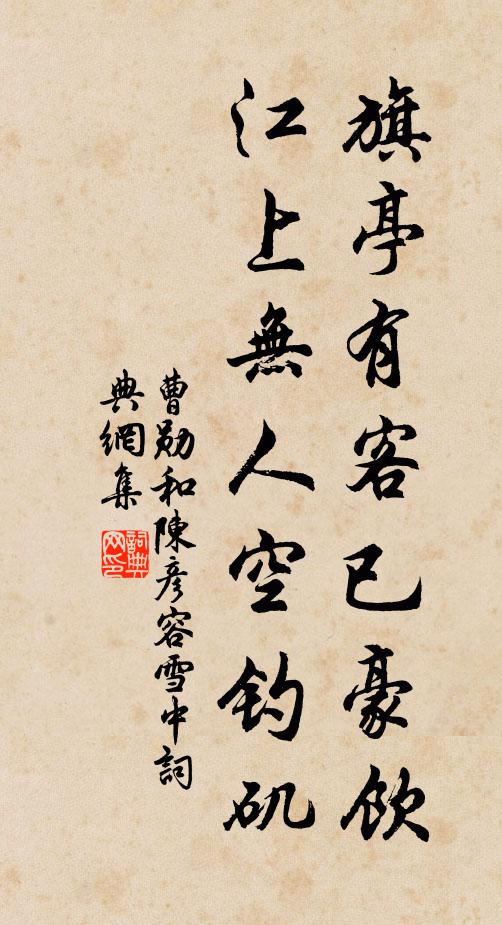 旗亭有客已豪飲
江上無人空釣矶
曹勛和陳彥容雪中詞
典網集
詞典网印